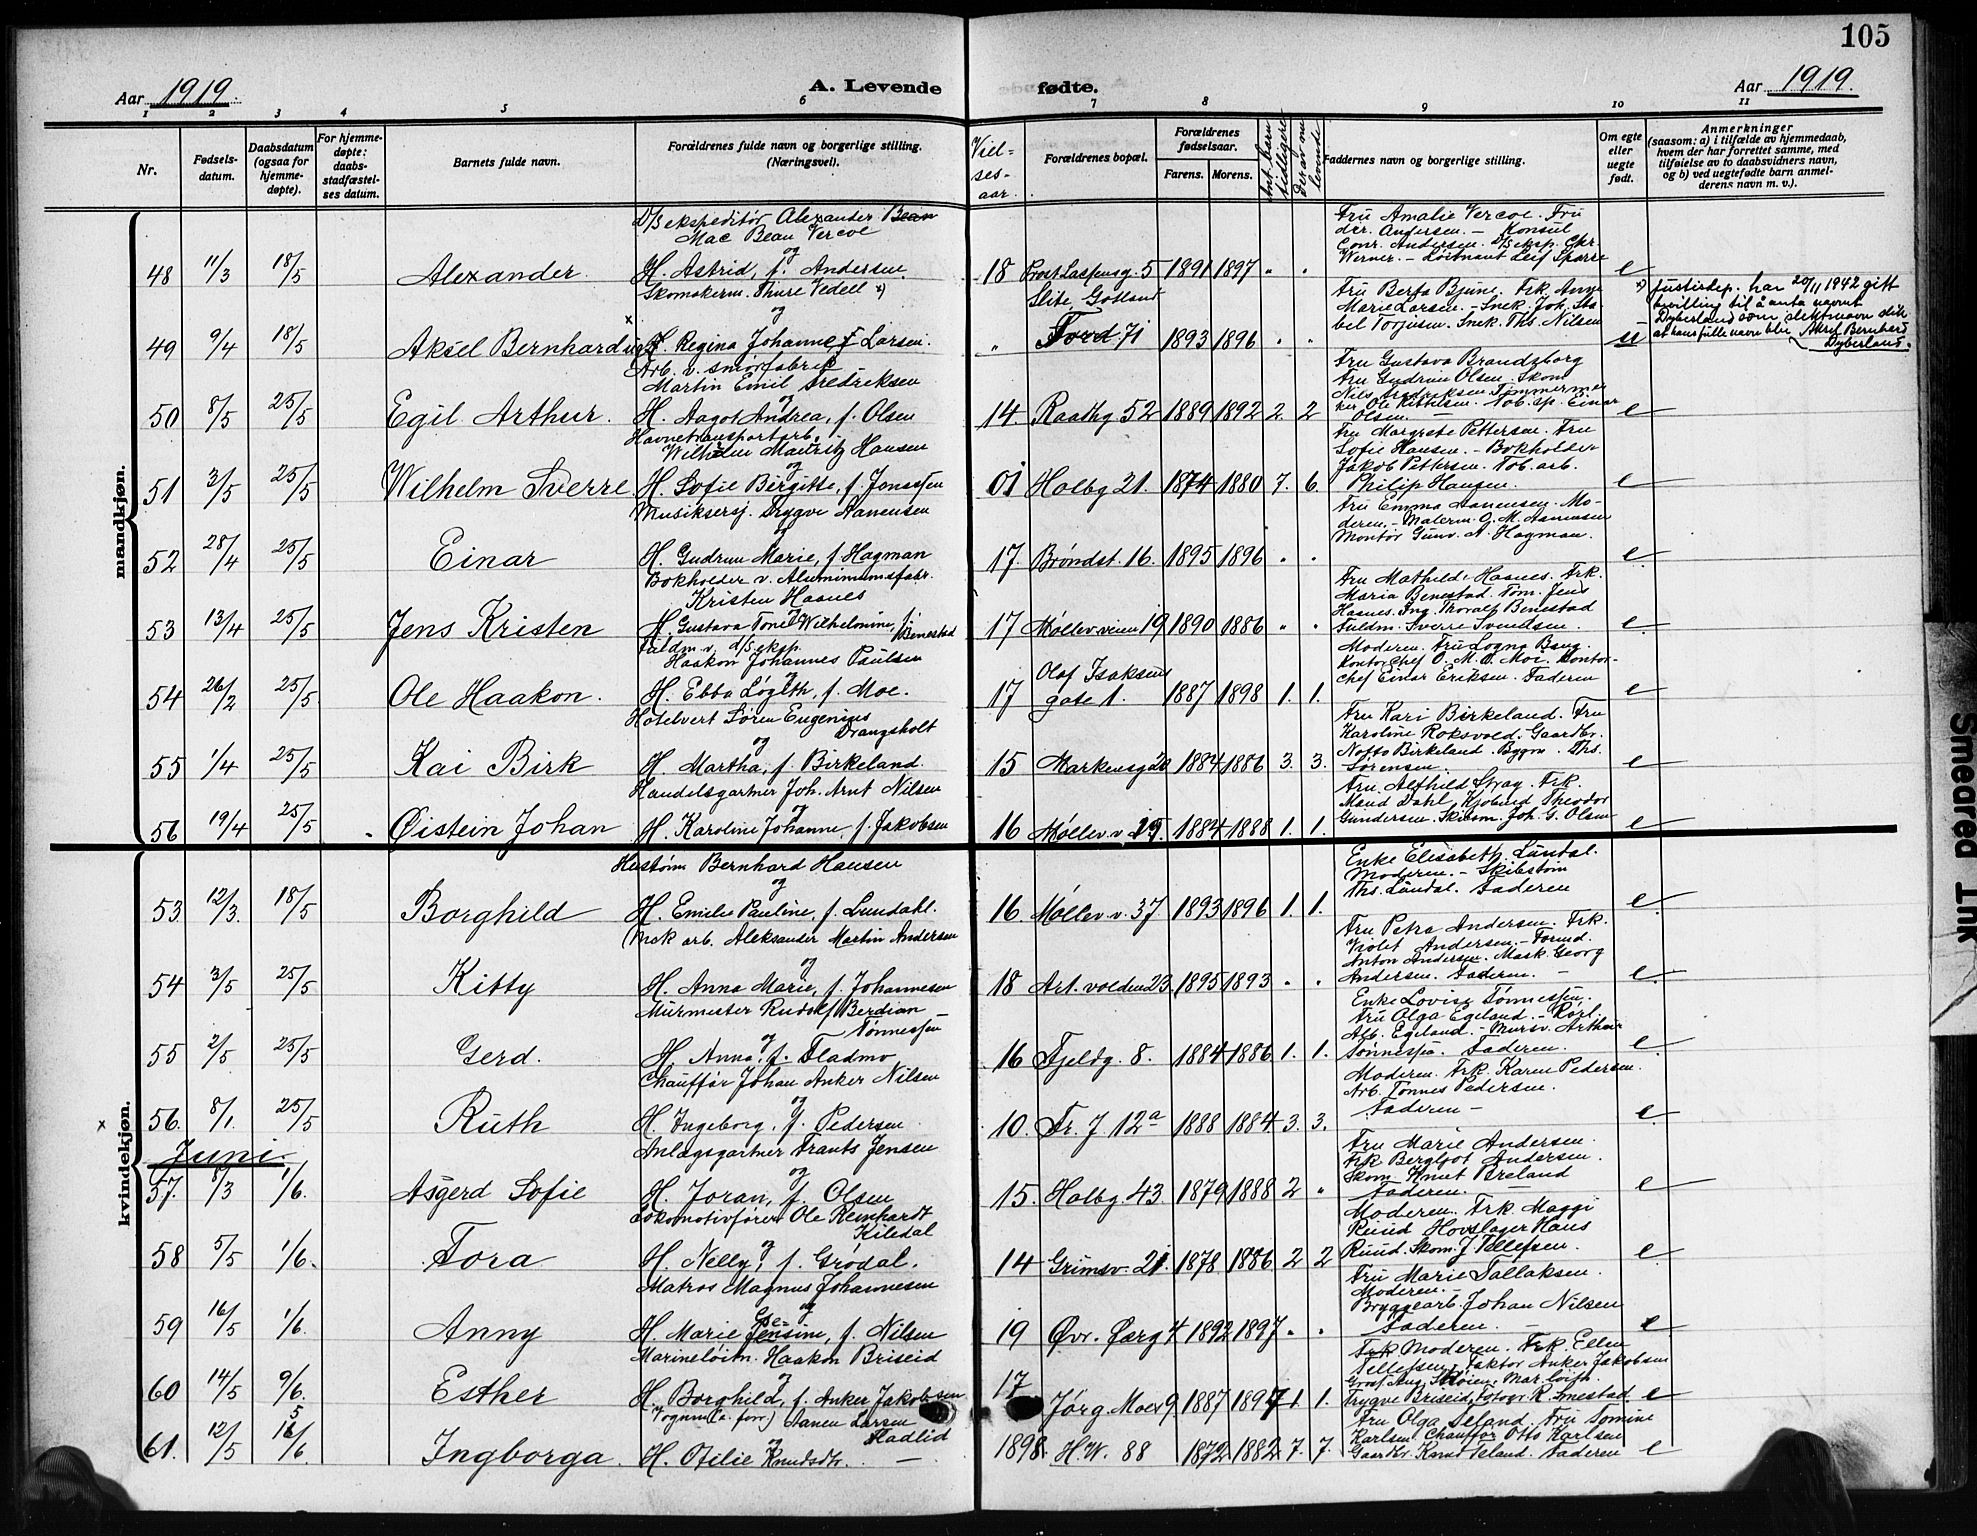 105
Aar 1919
A. Levende
fødte.
Aar 1919.
1 2 3 4 5 6 7 8 9 10 11
Nr.
Fødsels-
datum.
Daabsdatum
(ogsaa for
hjemme-
døpte).
For hjemme-
døpte:
daabs
stadfæstel-
ses datum.
Barnets fulde navn.
Forældrenes fulde navn og borgerlige stilling.
(Næringsvei).
Viel-
ses-
aar
Forældrenes bopæl.
Forældrenes
fødselsaar.
Farens. Morens.
Ant. barn
tidligere
Derav nu
levende
Faddernes navn og borgerlige stilling.
Om egte
eller
uegte
født.
Anmerkninger
(saasom: a) i tilfælde av hjemmedaab,
hvem der har forrettet samme, med
tilføielse av to daabsvidners navn,
og b) ved uegtefødte barn anmel-
derens navn m. v.).
mandkjøn.
D/S ekspeditør Alexander Bean
Mac Bean Vercoe
og
48 11/3 18/5 Alexander H. Astrid, f. Andersen.
18 1891 1897 " "
Fru Amalie Vercoe. Fru
Andersen. - Konsul
Conr. Andersen. D/S eksp. Chr.
Werner. - Løitnant Leif Sparre
e
Skomakerm. Thure Vedell x)
og
49 9/4 18/5 Aksel Bernhard Regina Johanne Larsen.
Slite Gotland
" 71 1893 1896 " "
Fru Berta Bjune. Frk. Anne
Marie Larsen. - Snek. Joh.
Torjusen. Snek. Ths. Nilsen
u
x) Justisdep. har 20/11 1942 gitt
bevilling til å anta navnet
Dyberland som slektsnavn slik
at hans fulle navn blir Aksel Bernhard
Dyberland.
Arb. v. smørfabrik
Martin Emil Fredriksen
og
50 8/5 25/5 Egil Arthur. H. Aagot Andrea, f. Olsen
14. Raadhg 52 1889 1892 2 2
Fru Gustava Brandsborg
Fru Gudrun Olsen. Skom
Nils Fredriksen Tømmerman
Ole Kittelsen. Tob. sp. Einar
Olsen. -
e
Havnetransportarb.
Wilhelm Mauritz Hansen
og
51 3/5 25/5 Wilhelm Sverre H. Sofie Birgitte, f. Jonassen
01 Holbg 21. 1874 1880 7. 6.
Fru Margrete Pettersen. Fru
Sofie Hansen. - Bokholder
Jakob Pettersen. Tob. arb.
Philip Hansen.
e
Musiksersj. Trygve Aanensen
og
52 28/4 25/5 Einar H. Gudrun Marie, f. Hagman
17. Brøndst. 16. 1895 1896 " "
Fru Emma Aanensen. Mo-
deren. - Malerm. O. M. Aanensen
Montør Gunv. A. Hagman.
e
Bokholder v. Aluminiumsfabr.
Kristen Haanes
og
53 13/4 25/5 Jens Kristen H. Gustava Tonel Wilhelmine, f. Benestad
17 Møllevveien 19 1890 1886 " "
Fru Mathilde Haanes. Frk.
Maria Benestad. Tøm. Jens
Haanes. Ing. Thoralf Benestad
Fuldm. Sverre Svendsen.
e
Fuldm v. d/s eksp.
Haakon Johannes Paulsen
og
54 26/2 25/5 Ole Haakon. H. Ebba Løgith, f. Moe.
17 Olaf Isaksens
gate 1. 1887 1898 1. 1.
Moderen. Fru Logna Baug.
Kontorchef O. M. B. Moe. Kontor-
chef Einar Eriksen. Faderen
e
Hotelvert Søren Eugenius
Drangsholt
og
55 1/4 25/5 Kai Birk H. Martha, f. Birkeland.
15 Markensg 20 1884 1886 3. 3.
Fru Kari Birkeland. Fru
Karoline Roksvold. Gaardbr.
Notto Birkeland. Bygm. Ths.
Sørensen.
e
Handelsgartner Joh. Arnt Nilsen
og
56 19/4 25/5 Øistein Johan H. Karoline Johanne, f. Jakobsen
16 Møllev. v. 1884 1888 1. 1.
Fru Alfhild Stray. Frk.
Maud Dahl, Kjøbmd Theodor
Gundersen. Skibsm. Joh. G. Olsen
e
kvindekjøn.
Hustøm Bernhard Hansen
og
53 12/3. 18/5 Borghild H. Emilie Pauline, f. Lundahl.
16. Møllev. v. 37 1893 1896 1. 1.
Enke Elisabeth Lundal.
Moderen. - Skibstøm
Ths. Lundal. Faderen
e
Mek arb. Aleksander Martin Andersen
og
54 3/5 25/5 Kitty H. Anna Marie, f. Johannesen
18 Art. volden 23. 1895 1893 " "
Fru Petra Andersen. Frk.
Violet Andersen. - Formd.
Anton Andersen. Mask. Georg
Andersen. Faderen. -
e
Murmester Rudolf Berdian
Tønnessen
og
55 2/5 25/5 Gerd. H. Anna, f. Fladmo
16 Fjeldg. 8. 1884 1886 1. 1.
Enke Lovise Tønnessen.
Fru Olga Egeland. - Rørl.
Alb. Egeland. - Mursv. Arthur
Tønnessen. Faderen.
e
Chauffør Johan Anker Nilsen
og
x 56. 8/1. 25/5 Ruth H. Ingeborg, f. Pedersen
10. Fr. J 12a 1888 1884 3. 3.
Moderen. Frk. Karen Pedersen.
Arb. Tønnes Pedersen.
Faderen -
e
Juni.
Anlægsgartner Frants Jensen
og
57. 8/3 1/6. Asgerd Sofie H. Joran, f. Olsen
15. Holbg. 43. 1879 1888 2 "
Fru Marie Andersen.
Frk Bergljot Andersen.
Skom Knut Breland
Faderen. -
e
Lokomotivfører Ole Reinhardt
Kiledal
og
58 5/5 1/6. Tora H. Nelly, f. Grødal.
14 Grimsv. 21. 1878 1886 2 2
Moderen. Frk. Maggi
Ruud Hovslager Hans
Ruud. Skom. J. Tellefsen.
e
Matros Magnus Johannesen
og
59 16/5 1/6. Anny H. Marie Jensine, f. Nilsen
19 Øvr. Færg 4 1892 1897 " "
Fru Marie Tallaksen.
Moderen. -
Bryggearb. Johan Nilsen
Faderen. -
e
Marineløitn. Haakon Briseid
og
60 14/5 9/6. Esther H. Borghild, f. Anker Jakobsen
17 Jørg. Moes 9. 1887 1897 1. 1.
Frk Moderen. Frk. Ellen
Tellefsen, Faktor Anker Jakobsen
Trygve Briseid, Fotogr. R. Smestad
e
Vognm (a. forr.) Aanen Larsen
Fladlid
og
61. 12/5 Ingborga H. Otilie Knudsdtr. -
1898. H. W. 88 1872 1882 7. 7.
Fru Olga Seland. Fru Tomine
Karlsen. Chauffør Otto Karlsen
Gaardbr. Knud Seland. Faderen
e
Smeared Ink